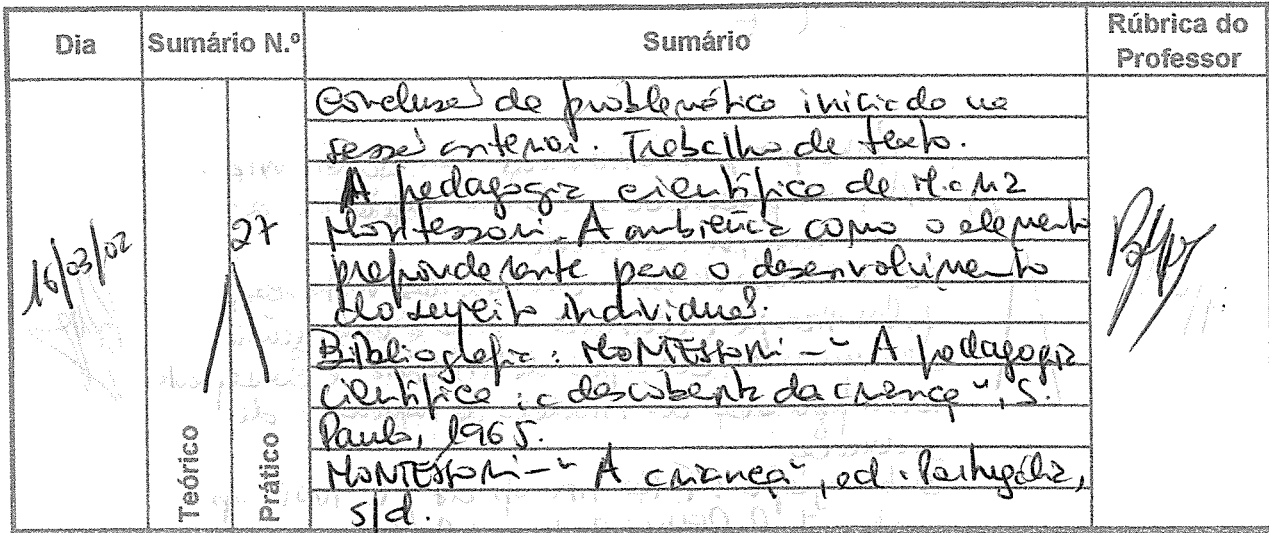 Dia Sumário N.º Sumário Rúbrica do Professor
16/03/02
27
Teórico
Prático
Conclusão da problemática iniciada na
sessão anterior. Trabalho de texto.
A pedagogia científica de Maria
Montessori. A ambiência como o elemento
preponderante para o desenvolvimento
do sujeito individual.
Bibliografia: MONTESSORI - "A pedagogia
científica: a descoberta da criança", S.
Paulo, 1965.
MONTESSORI - "A criança", ed. Portugália,
s/d.